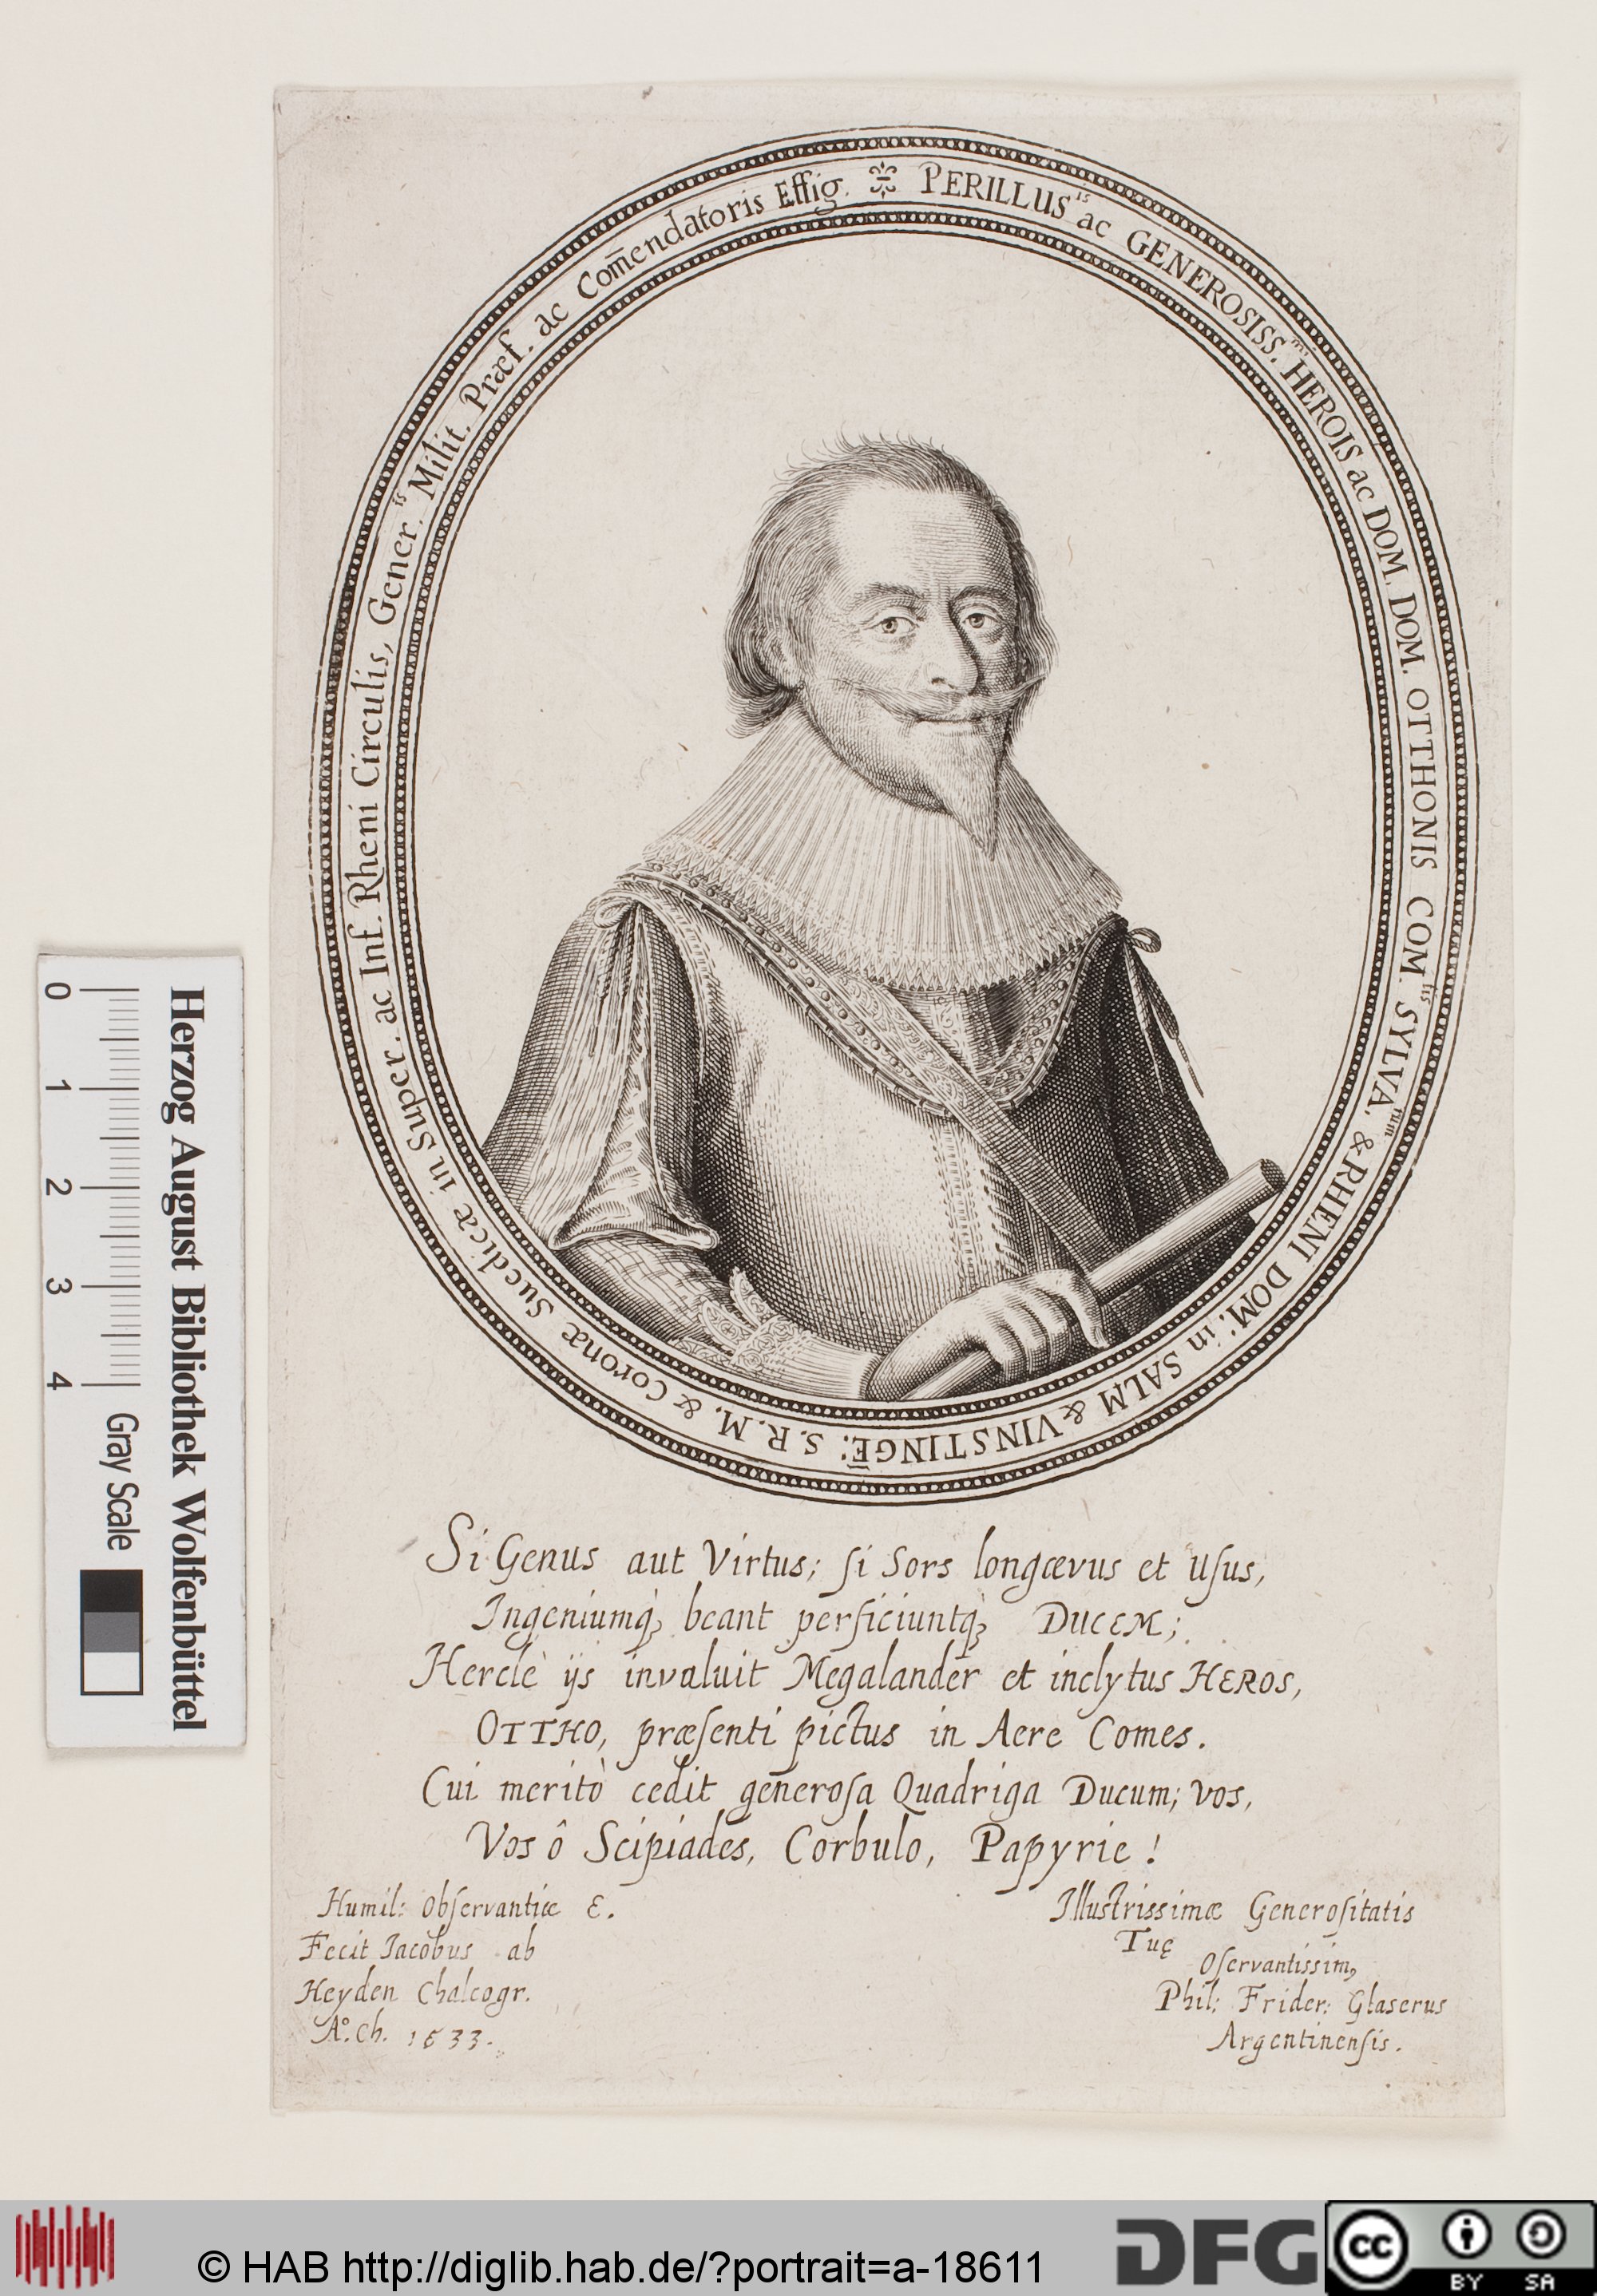 PERILLUS.is ac GENEROSISS.mi HEROIS ac DOM. DOM. OTTHONIS COM.itis SYLVA.rum & RHENI DOM: in SALM & VINSTINGĒ: S.R.M. & Coronæ Suedicæ in Super. ac Inf. Rheni Circulis, Gener.is Milit. Præf. ac Com̄endatoris Effig.
Si Genus aut Virtus; ſi Sors longævus et Uſus,
Ingeniumq́ꝫ beant perficiuntq́ꝫ DUCEM;
Herclè ijs invaluit Megalander et inclytus HEROS,
OTTHO, præſenti pictus in Aere Comes.
Cui meritò cedit generoſa Quadriga Ducum; vos,
Vos ô Scipiades, Corbulo, Papyrie!
Humil: Obſervantiæ E.
Fecit Iacobus ab
Heyden Chalcogr.
Aº. Ch. 1633.
Illustrissimæ Generoſitatis
Tuę
Oſervantissimꝰ
Phil: Frider: Glaserus
Argentinenſis.
Herzog August Bibliothek Wolfenbüttel
0 1 2 3 4 Gray Scale
© HAB http://diglib.hab.de/?portrait=a-18611
DFG
cc BY SA